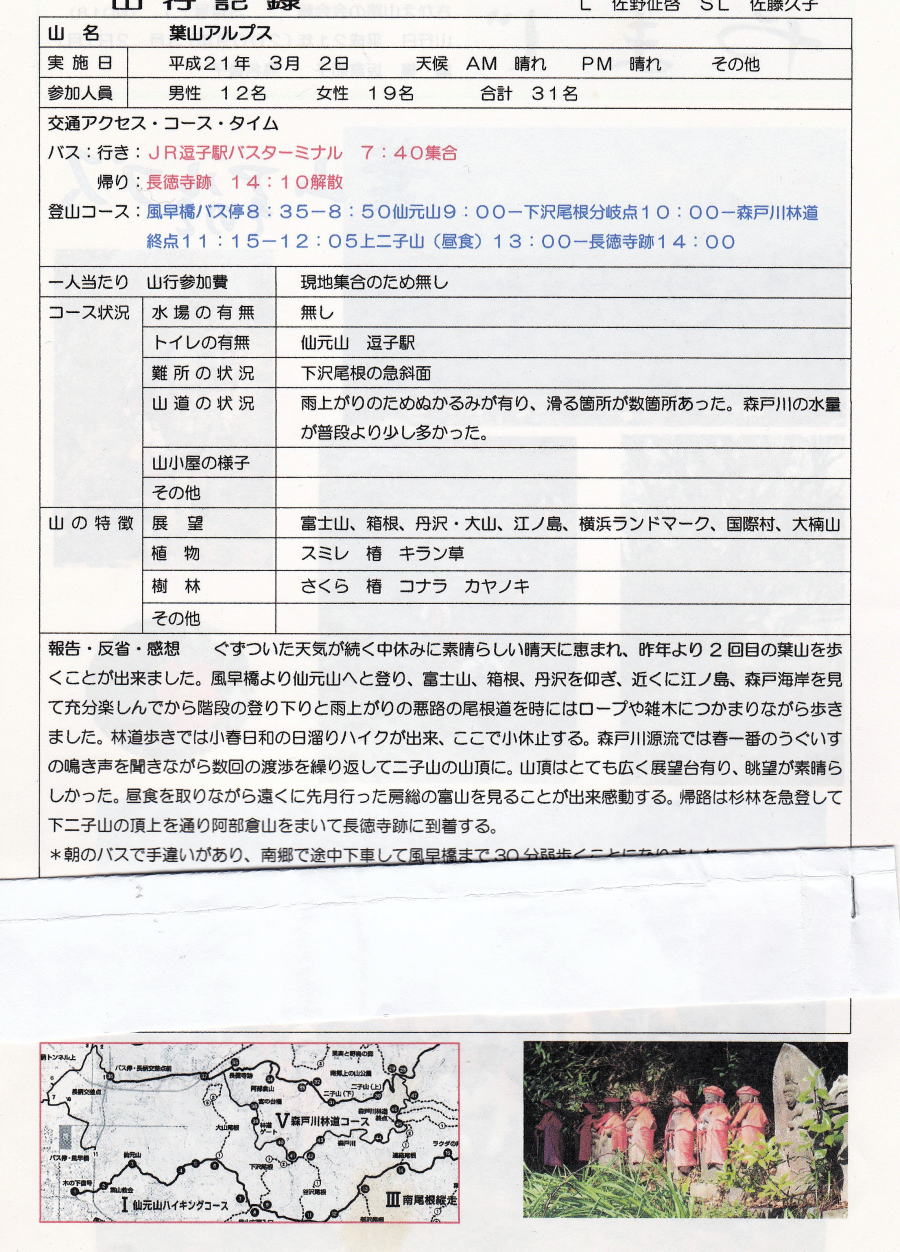 山行記録
L 佐野征啓 SL 佐藤久子
山名 葉山アルプス
実施日 平成21年 3月 2日 天候 AM 晴れ PM 晴れ その他
参加人員 男性 12名 女性 19名 合計 31名
交通アクセス・コース・タイム
バス：行き：JR逗子駅バスターミナル 7：40集合
帰り：長徳寺跡 14：10解散
登山コース：風早橋バス停8：35－8：50仙元山9：00－下沢尾根分岐点10：00－森戸川林道
終点11：15－12：05上二子山（昼食）13：00－長徳寺跡14：00
一人当たり 山行参加費 現地集合のため無し
コース状況 水場の有無 無し
トイレの有無 仙元山 逗子駅
難所の状況 下沢尾根の急斜面
山道の状況 雨上がりのためぬかるみが有り、滑る箇所が数箇所あった。森戸川の水量
が普段より少し多かった。
山小屋の様子
その他
山の特徴 展望 富士山、箱根、丹沢・大山、江ノ島、横浜ランドマーク、国際村、大楠山
植物 スミレ 椿 キラン草
樹林 さくら 椿 コナラ カヤノキ
その他
報告・反省・感想 ぐずついた天気が続く中休みに素晴らしい晴天に恵まれ、昨年より2回目の葉山を歩
くことが出来ました。風早橋より仙元山へと登り、富士山、箱根、丹沢を仰ぎ、近くに江ノ島、森戸海岸を見
て充分楽しんでから階段の登り下りと雨上がりの悪路の尾根道を時にはロープや雑木につかまりながら歩き
ました。林道歩きでは小春日和の日溜りハイクが出来、ここで小休止する。森戸川源流では春一番のうぐいす
の鳴き声を聞きながら数回の渡渉を繰り返して二子山の山頂に。山頂はとても広く展望台有り、眺望が素晴ら
しかった。昼食を取りながら遠くに先月行った房総の富山を見ることが出来感動する。帰路は杉林を急登して
下二子山の頂上を通り阿部倉山をまいて長徳寺跡に到着する。
＊朝のバスで手違いがあり、南郷で途中下車して風早橋まで30分弱歩くことになりました
トンネル上
バス停・長柄交差点前
長柄交差点
長徳寺跡
阿部倉山
果実と野鳥の森
南郷上の山公園
二子山（上）
二子山（下）
林道ゲート
大山尾根
V 森戸川林道コース
森戸川林道終点
森戸川
連絡尾根
バス停・風早橋
仙元山
木の下信号
葉山教会
下沢尾根
I 仙元山ハイキングコース
III 南尾根縦走